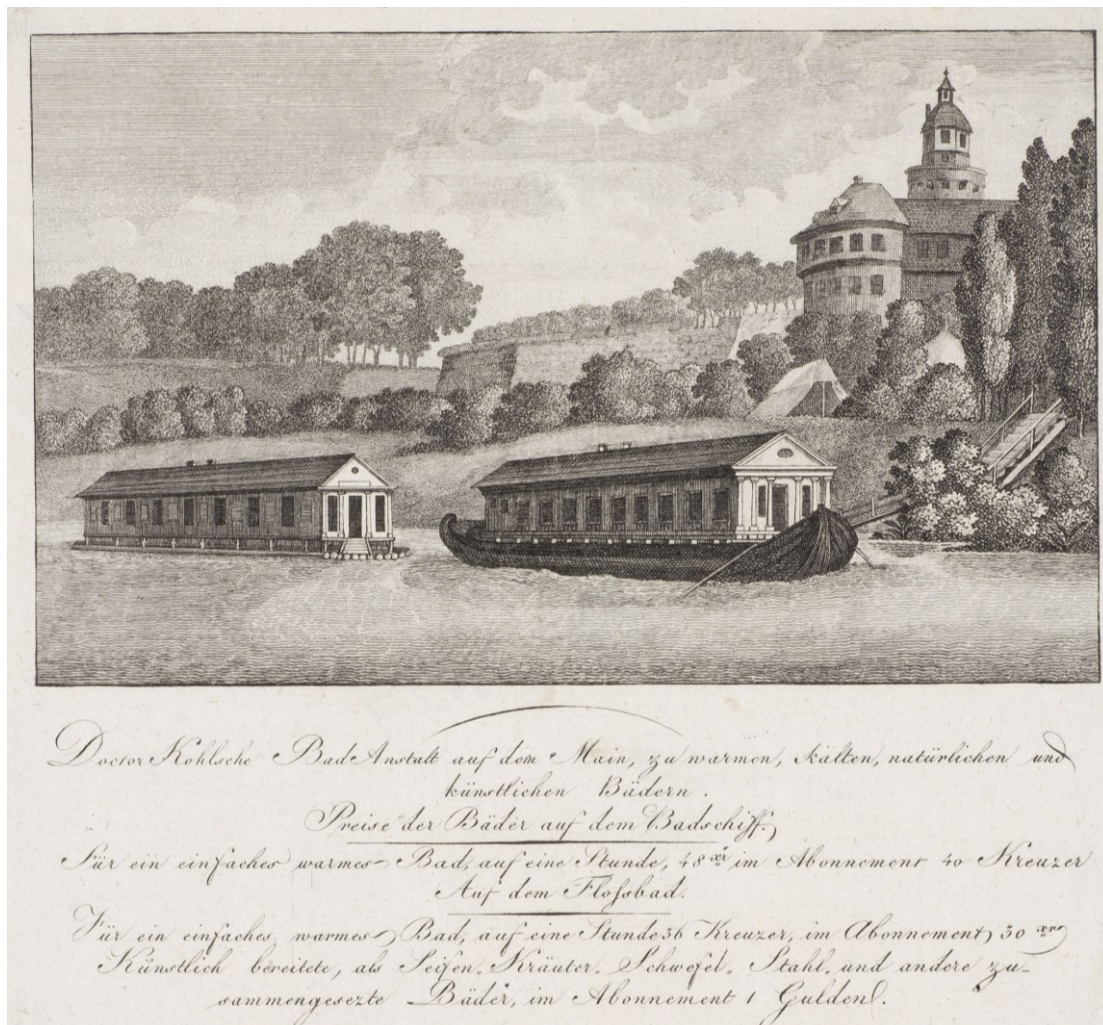 Doctor Kohlsche Bad Anstalt auf dem Main, zu warmen, kalten, natürlichen und
künstlichen Bädern.
Preise der Bäder auf dem Badschiff.
Für ein einfaches warmes Bad, auf eine Stunde, 48 xr im Abonnement 40 Kreuzer
Auf dem Flossbad.
Für ein einfaches warmes Bad, auf eine Stunde 36 Kreuzer, im Abonnement 30 xr
Künstlich bereitete, als Seifen- Kräuter- Schwefel- Stahl- und andere zu-
sammengesezte Bäder, im Abonnement 1 Gulden.